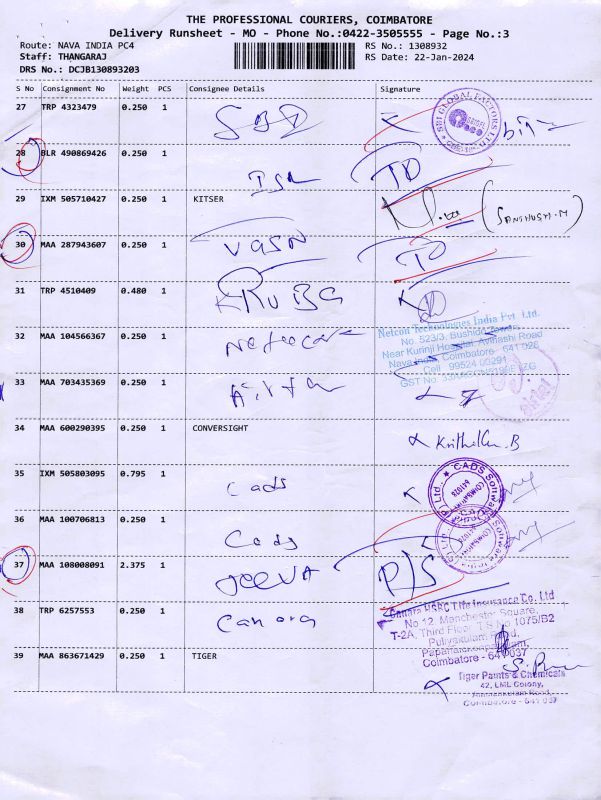 THE PROFESSIONAL COURIERS, COIMBATORE
Delivery Runsheet - MO - Phone No.:0422-3505555 - Page No.:3
Route: NAVA INDIA PC4
RS No.: 1308932
Staff: THANGARAJ
RS Date: 22-Jan-2024
DRS No.: DCJB130893203
S No Consignment No Weight PCS Consignee Details Signature
27 TRP 4323479 0.250 1
SBI GLOBAL FACTORS LTD.
28 BLR 490869426 0.250 1
29 IXM 505710427 0.250 1 KITSER
(SANTHOSH.M)
30 MAA 287943607 0.250 1 VGSN
31 TRP 4510409 0.480 1
Netcon Technologies India Pvt. Ltd.
No. 523/3, Bushido Tower,
32 MAA 104566367 0.250 1
Near Kurinji Hospital, Avinashi Road
Nava India, Coimbatore - 641 028
Cell : 99524 03291
GST No.
33 MAA 703435369 0.250 1
34 MAA 600290395 0.250 1 CONVERSIGHT
35 IXM 505803095 0.795 1 Cads
CADS Software
36 MAA 100706813 0.250 1 Cads
37 MAA 108008091 2.375 1 JEEVA
38 TRP 6257553 0.250 1 Canara
Canara HSBC Life Insurance Co. Ltd
No 12, Manchester Square,
T-2A, Third Floor, T.S No 1075/B2
Puliyakulam Road,
Papanaickenpalayam,
Coimbatore - 641037
39 MAA 863671429 0.250 1 TIGER
Tiger Paints & Chemicals
42, LML Colony,
Coimbatore - 641 037